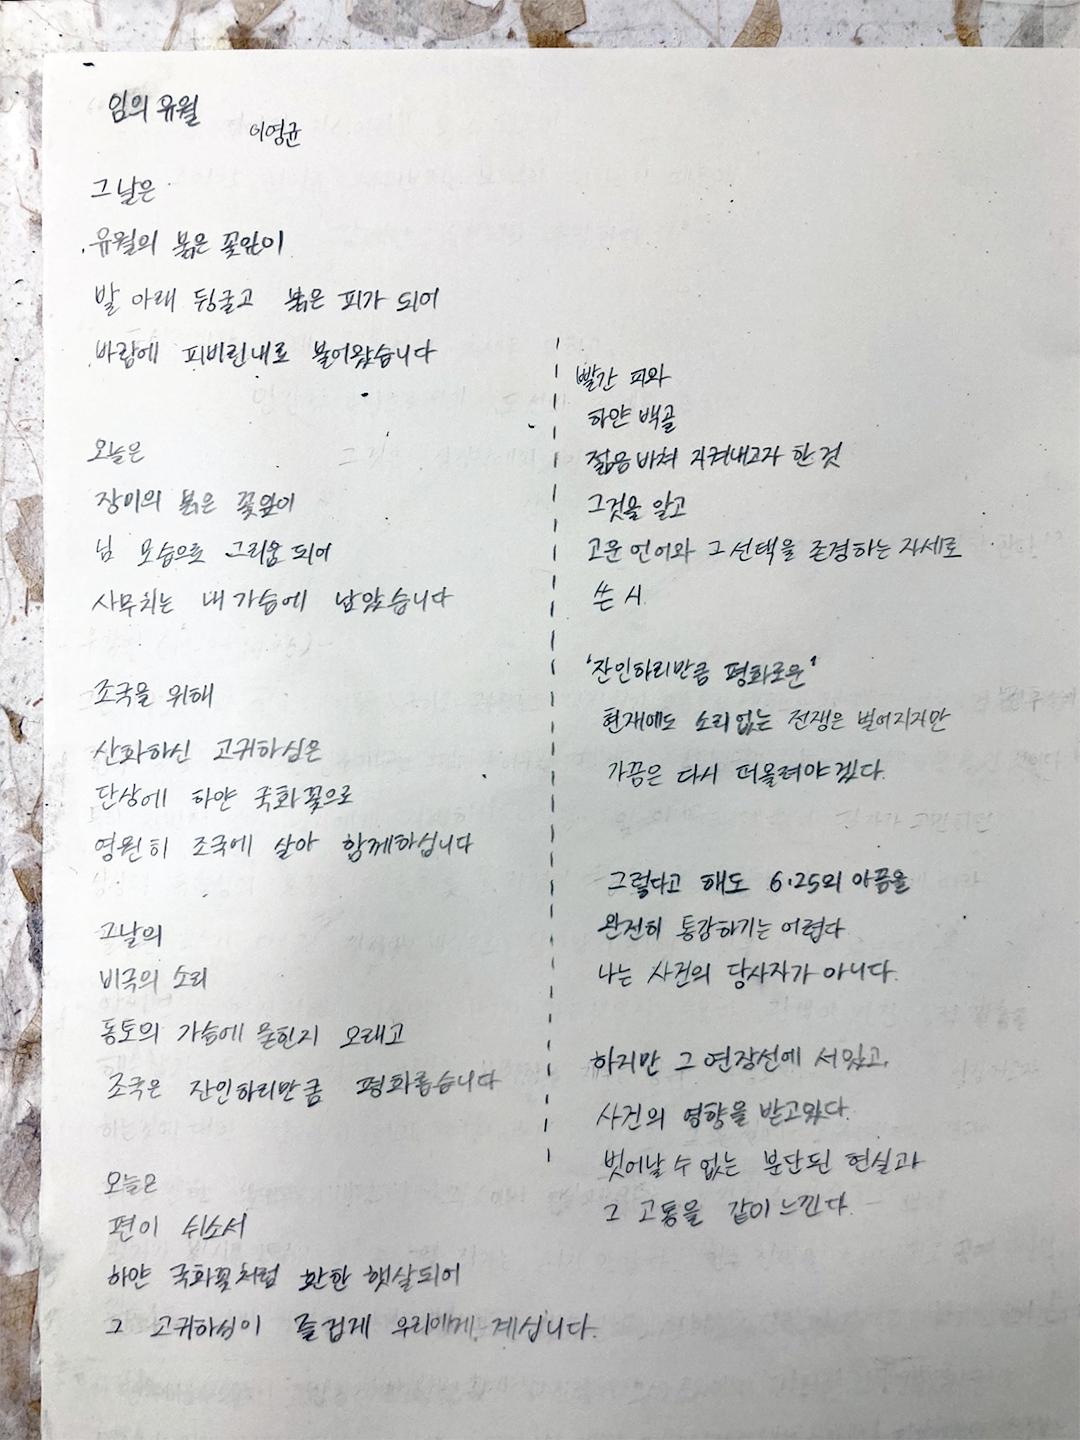 임의 유월
이영균
그날은
유월의 붉은 꽃잎이
발 아래 뒹굴고 붉은 피가 되어
바람에 피비린내로 불어왔습니다
오늘은
장미의 붉은 꽃잎이
님 모습으로 그리움 되어
사무치는 내 가슴에 남았습니다
조국을 위해
산화하신 고귀하심은
단상에 하얀 국화꽃으로
영원히 조국에 살아 함께하십니다
그날의
비극의 소리
동토의 가슴에 묻힌지 오래고
조국은 잔인하리만큼 평화롭습니다
오늘은
편이 쉬소서
하얀 국화꽃처럼 환한 햇살되어
그 고귀하심이 즐겁게 우리에게 계십니다.
빨간 피와
하얀 백골
젊음 바쳐 지켜내고자 한 것
그것을 알고
고운 언어와 그 선택을 존경하는 자세로
쓴 시.
'잔인하리만큼 평화로운'
현재에도 소리 없는 전쟁은 벌어지지만
가끔은 다시 떠올려야겠다.
그렇다고 해도 6.25의 아픔을
완전히 통감하기는 어렵다
나는 사건의 당사자가 아니다.
하지만 그 연장선에 서있고,
사건의 영향을 받고있다.
벗어날 수 없는 분단된 현실과
그 고통을 같이 느낀다.